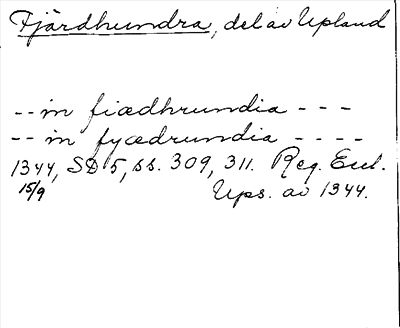 Fjärdhundra, del av Upland
-- in fiædhrundia ---
-- in fyædrundia ----
1344, SD 5, ss. 309, 311. Reg. Eccl.
15/9 Ups. av 1344.